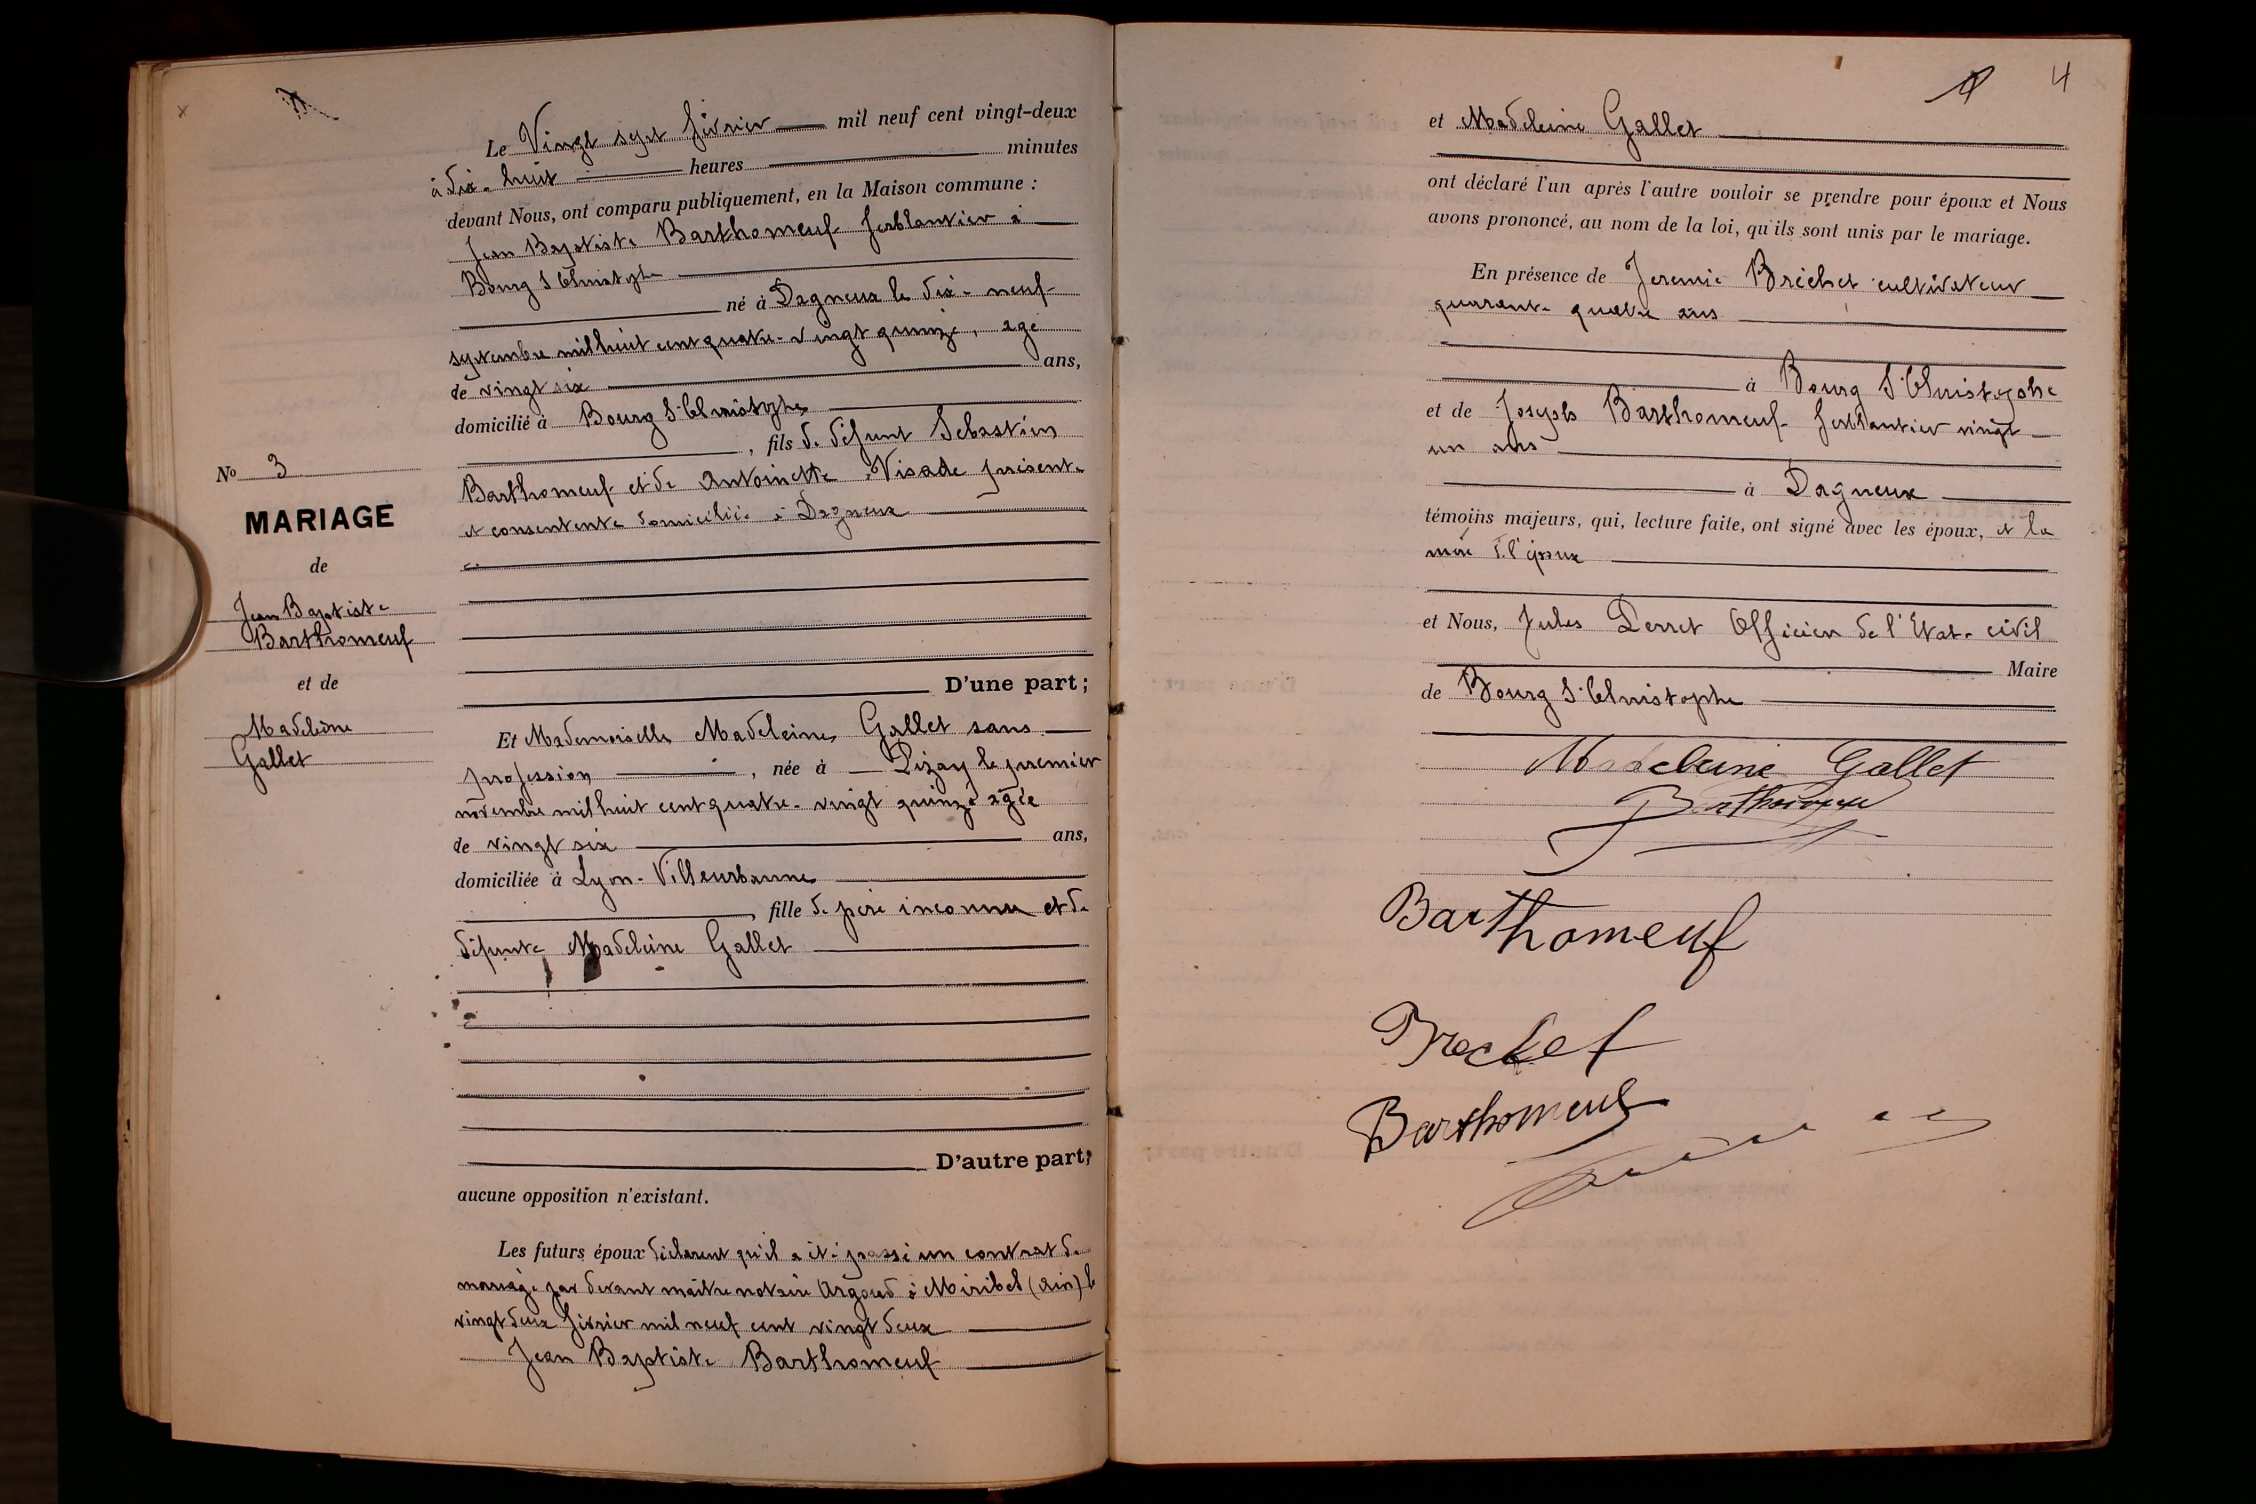 Le Vingt sept février mil neuf cent vingt-deux
à dix-huit heures minutes
devant Nous, ont comparu publiquement, en la Maison commune :
Jean Baptiste Barthomeuf ferblantier à
Bourg St Christophe
né à Dagneux le dix-neuf
septembre mil huit cent quatre-vingt quinze, agé
de vingt six ans,
domicilié à Bourg St Christophe
, fils de défunt Sebastien
Barthomeuf et de Antoinette Visade présente
et consentente domiciliée à Dagneux
D'une part ;
Et Mademoiselle Madeleine Gallet sans
profession , née à Pizay le premier
novembre mil huit cent quatre-vingt quinze agée
de vingt six ans,
domiciliée à Lyon-Villeurbanne
, fille de père inconnu et de
défunte Madeleine Gallet
D'autre part ;
aucune opposition n'existant.
Les futurs époux déclarent qu'il a été passé un contrat de
mariage par devant maître notaire Argoud à Miribel (Ain) le
vingt deux février mil neuf cent vingt deux
Jean Baptiste Barthomeuf
No 3
MARIAGE
de
Jean Baptiste
Barthomeuf
et de
Madeleine
Gallet
4
et Madeleine Gallet
ont déclaré l'un après l'autre vouloir se prendre pour époux et Nous
avons prononcé, au nom de la loi, qu'ils sont unis par le mariage.
En présence de Jeremie Bréchet cultivateur
quarante quatre ans
à Bourg St Christophe
et de Joseph Barthomeuf ferblantier vingt
un ans
à Dagneux
témoins majeurs, qui, lecture faite, ont signé avec les époux, et la
mère de l'époux
et Nous, Jules Perret Officier de l'Etat-civil
Maire
de Bourg St Christophe
Madeleine Gallet
Barthomeuf
Barthomeuf
Brechet
Barthomeuf